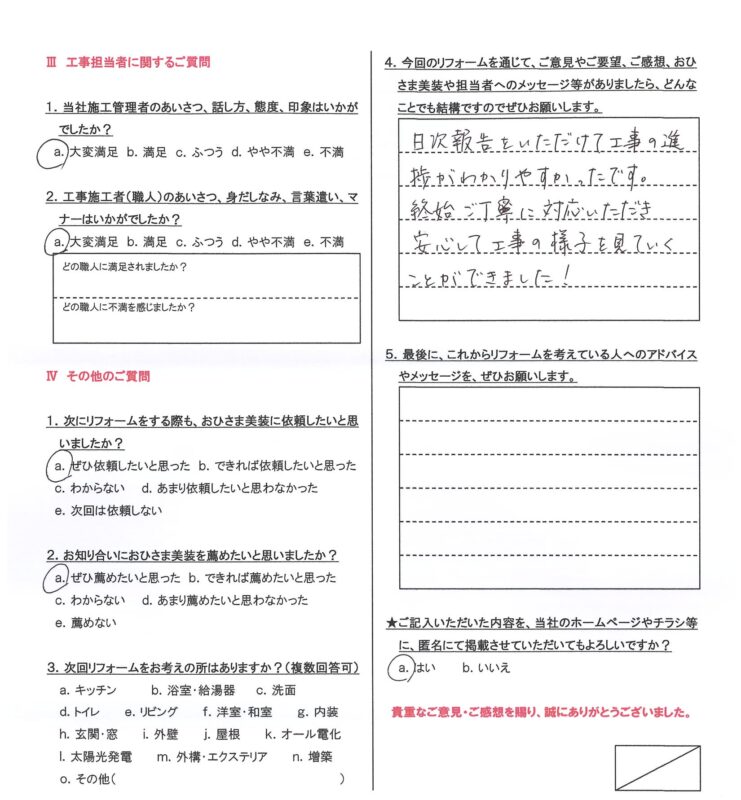 Ⅲ 工事担当者に関するご質問
1. 当社施工管理者のあいさつ、話し方、態度、印象はいかが
でしたか？
a. 大変満足 b. 満足 c. ふつう d. やや不満 e. 不満
2. 工事施工者（職人）のあいさつ、身だしなみ、言葉遣い、マ
ナーはいかがでしたか？
a. 大変満足 b. 満足 c. ふつう d. やや不満 e. 不満
どの職人に満足されましたか？
どの職人に不満を感じましたか？
Ⅳ その他のご質問
1. 次にリフォームをする際も、おひさま美装に依頼したいと思
いましたか？
a. ぜひ依頼したいと思った b. できれば依頼したいと思った
c. わからない d. あまり依頼したいと思わなかった
e. 次回は依頼しない
2. お知り合いにおひさま美装を薦めたいと思いましたか？
a. ぜひ薦めたいと思った b. できれば薦めたいと思った
c. わからない d. あまり薦めたいと思わなかった
e. 薦めない
3. 次回リフォームをお考えの所はありますか？（複数回答可）
a. キッチン b. 浴室・給湯器 c. 洗面
d. トイレ e. リビング f. 洋室・和室 g. 内装
h. 玄関・窓 i. 外壁 j. 屋根 k. オール電化
l. 太陽光発電 m. 外構・エクステリア n. 増築
o. その他（ ）
4. 今回のリフォームを通じて、ご意見やご要望、ご感想、おひ
さま美装や担当者へのメッセージ等がありましたら、どんな
ことでも結構ですのでぜひお願いします。
日次報告をいただけて工事の進
捗がわかりやすかったです。
終始ご丁寧に対応いただき
安心して工事の様子を見ていく
ことができました！
5. 最後に、これからリフォームを考えている人へのアドバイス
やメッセージを、ぜひお願いします。
★ご記入いただいた内容を、当社のホームページやチラシ等
に、匿名にて掲載させていただいてもよろしいですか？
a. はい b. いいえ
貴重なご意見・ご感想を賜り、誠にありがとうございました。